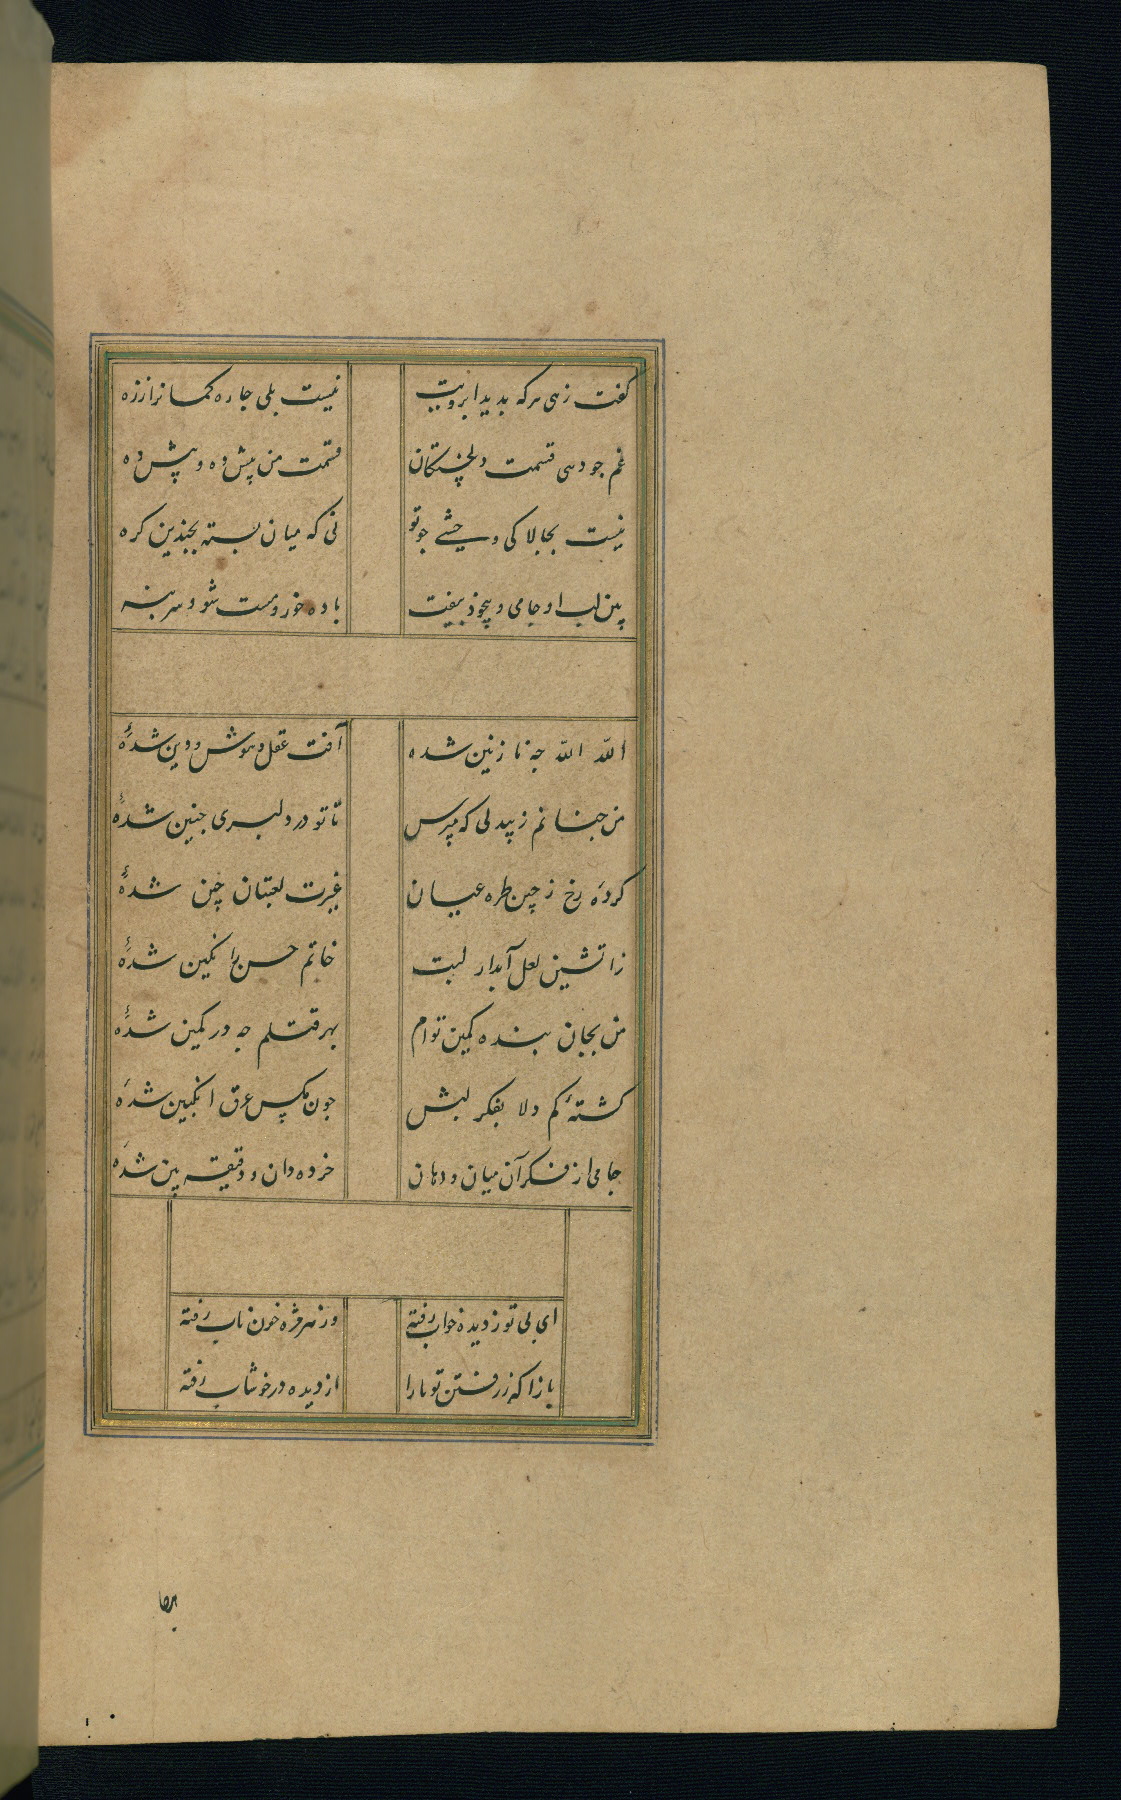 گفت زهی هرکه بدید ابرویت نیست بلی چاره کمانرا ززه
غم چو دهی قسمت دلخستگان قسمت من پیش ده و پیش ده
نیست بجا لاکی و حشی چو تو نی که میان بسته بچندین کره
بین لب او جامی و بیخود بیفت باده خور و مست شو و سر بنه
الله الله چه نازنین شده آفت عقل و هوش و دین شدهٔ
من چنانم ز بیدلی که مپرس تا تو در دلبری چنین شدهٔ
کردهٔ رخ ز چین طره عیان غیرت لعبتان چین شدهٔ
زاتشین لعل آبدار لبت خاتم حسن را نکین شدهٔ
من بجان بنده کمین توام بهر قتلم چه در کمین شدهٔ
کشتهٔ کم دلا بفکر لبش چون مکس غرق انکبین شدهٔ
جامی از فکر آن میان و دهان خرده دان و دقیقه بین شدهٔ
ای بی تو ز دیده خواب رفته وز هر مژه خون ناب رفته
بازا که ز رفتن تو ما را از دیده در خوشاب رفته